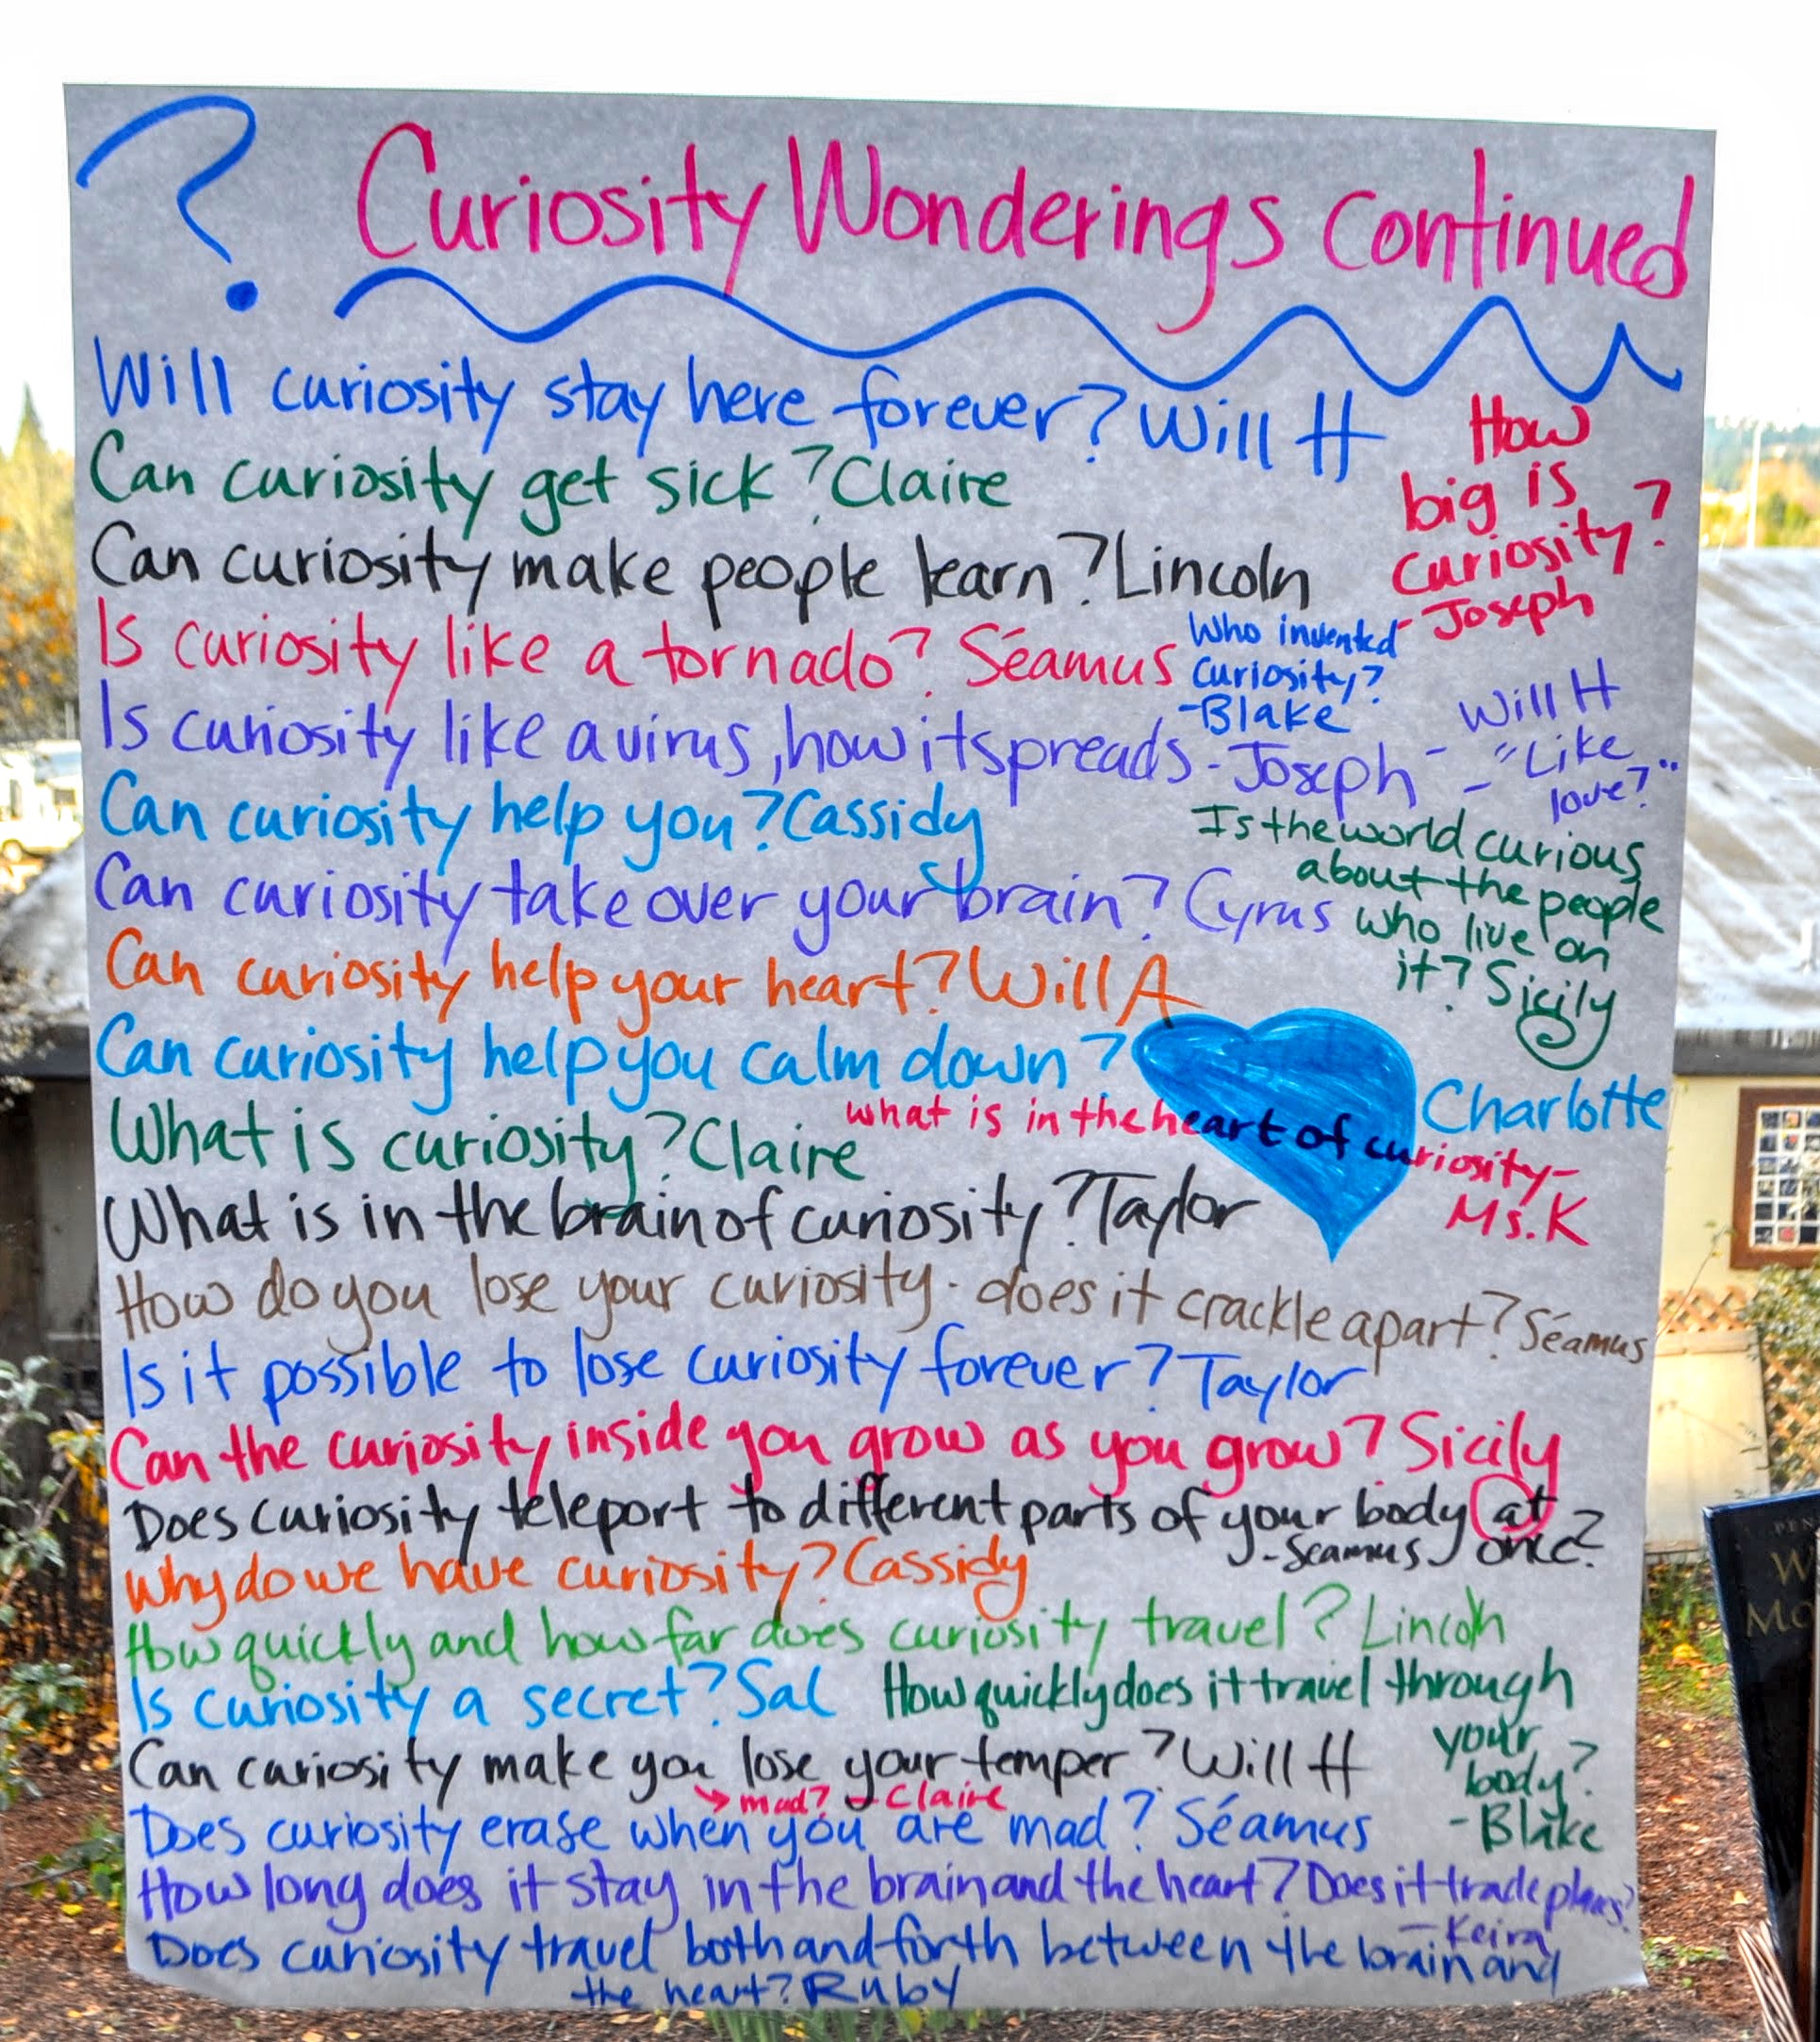 ? Curiosity Wonderings Continued
Will curiosity stay here forever? Will H
Can curiosity get sick? Claire
How
big is
Curiosity?
- Joseph
Can curiosity make people learn? Lincoln
Is curiosity like a tornado? Séamus
Who invented
curiosity?
- Blake
Is curiosity like a virus, how it spreads - Joseph -
Will H
- "Like
love?"
Can curiosity help you? Cassidy
Is the world curious
about the people
who live on
it? Sicily
Can curiosity take over your brain? Cyrus
Can curiosity help your heart? Will A
Can curiosity help you calm down? Charlotte
What is curiosity? Claire
what is in the heart of curiosity -
Ms. K
What is in the brain of curiosity? Taylor
How do you lose your curiosity - does it crackle apart? Séamus
Is it possible to lose curiosity forever? Taylor
Can the curiosity inside you grow as you grow? Sicily
Does curiosity teleport to different parts of your body at
once?
- Seamus
Why do we have curiosity? Cassidy
How quickly and how far does curiosity travel? Lincoln
Is curiosity a secret? Sal
How quickly does it travel through
your
body?
- Blake
Can curiosity make you lose your temper? Will H
→ mad? - Claire
Does curiosity erase when you are mad? Séamus
How long does it stay in the brain and the heart? Does it trade places?
- Keira
Does curiosity travel both and forth between the brain and
the heart? Ruby